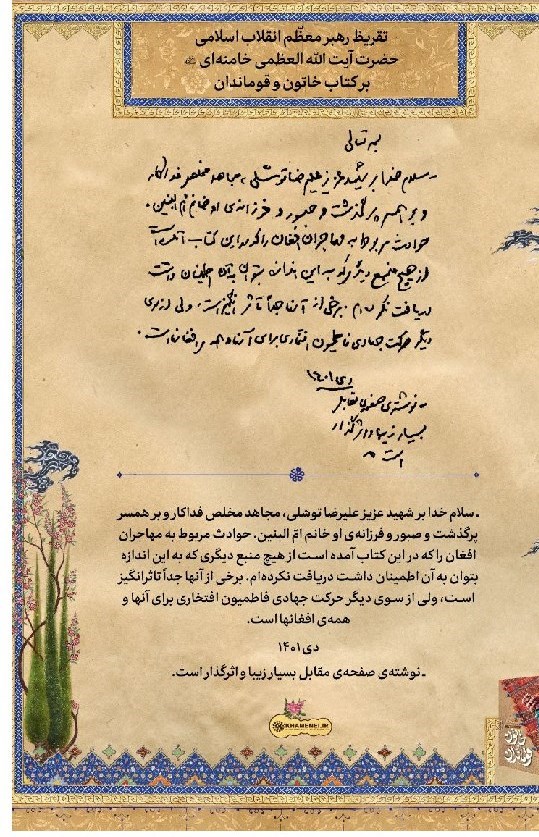 تقریظ رهبر معظّم انقلاب اسلامی
حضرت آیت الله العظمی خامنه‌ای
بر کتاب خاتون و قوماندان
بسمه تعالی
ـ سلام خدا بر شهید عزیز علیرضا توشلی، مجاهد مخلص فداکار
و بر همسر پرگذشت و صبور و فرزانه‌ی او خانم امّ البنین.
حوادث مربوط به مهاجران افغان را که در این کتاب آمده است
از هیچ منبع دیگری که به این اندازه بتوان به آن اطمینان داشت
دریافت نکرده‌ام. برخی از آنها جداً تاثرانگیز است، ولی از سوی
دیگر حرکت جهادی فاطمیون افتخاری برای آنها و همه‌ی افغانها است.
دی ۱۴۰۱
ـ نوشته‌ی صفحه‌ی مقابل
بسیار زیبا و اثرگذار
است
ـ سلام خدا بر شهید عزیز علیرضا توشلی، مجاهد مخلص فداکار و بر همسر
پرگذشت و صبور و فرزانه‌ی او خانم امّ البنین. حوادث مربوط به مهاجران
افغان را که در این کتاب آمده است از هیچ منبع دیگری که به این اندازه
بتوان به آن اطمینان داشت دریافت نکرده‌ام. برخی از آنها جداً تاثرانگیز
است، ولی از سوی دیگر حرکت جهادی فاطمیون افتخاری برای آنها و
همه‌ی افغانها است.
دی ۱۴۰۱
ـ نوشته‌ی صفحه‌ی مقابل بسیار زیبا و اثرگذار است.
KHAMENEI.IR